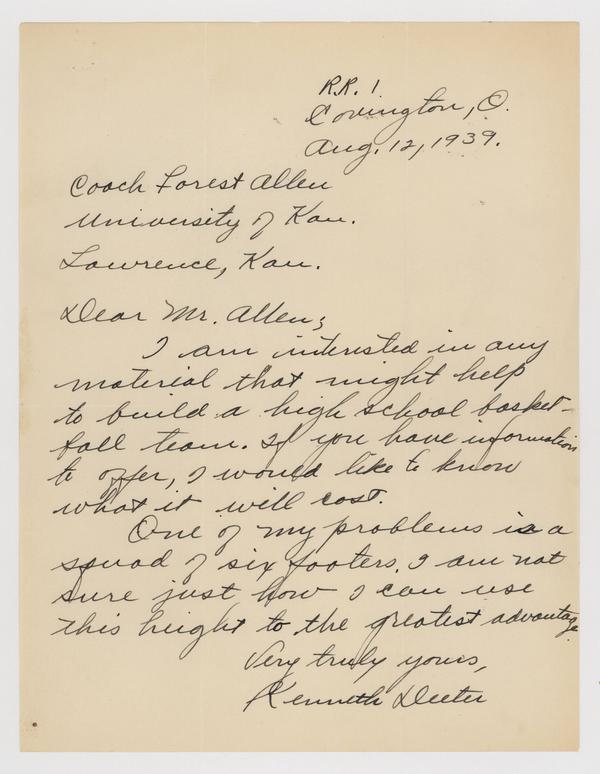 R.R. 1
Covington, O.
Aug. 12, 1939.
Coach Forest Allen
University of Kan.
Lawrence, Kan.
Dear Mr. Allen;
I am interested in any
material that might help
to build a high school basket-
ball team. If you have information
to offer, I would like to know
what it will cost.
One of my problems is a
squad of six footers. I am not
sure just how I can use
this height to the greatest advantage.
Very truly yours,
Kenneth Deeter